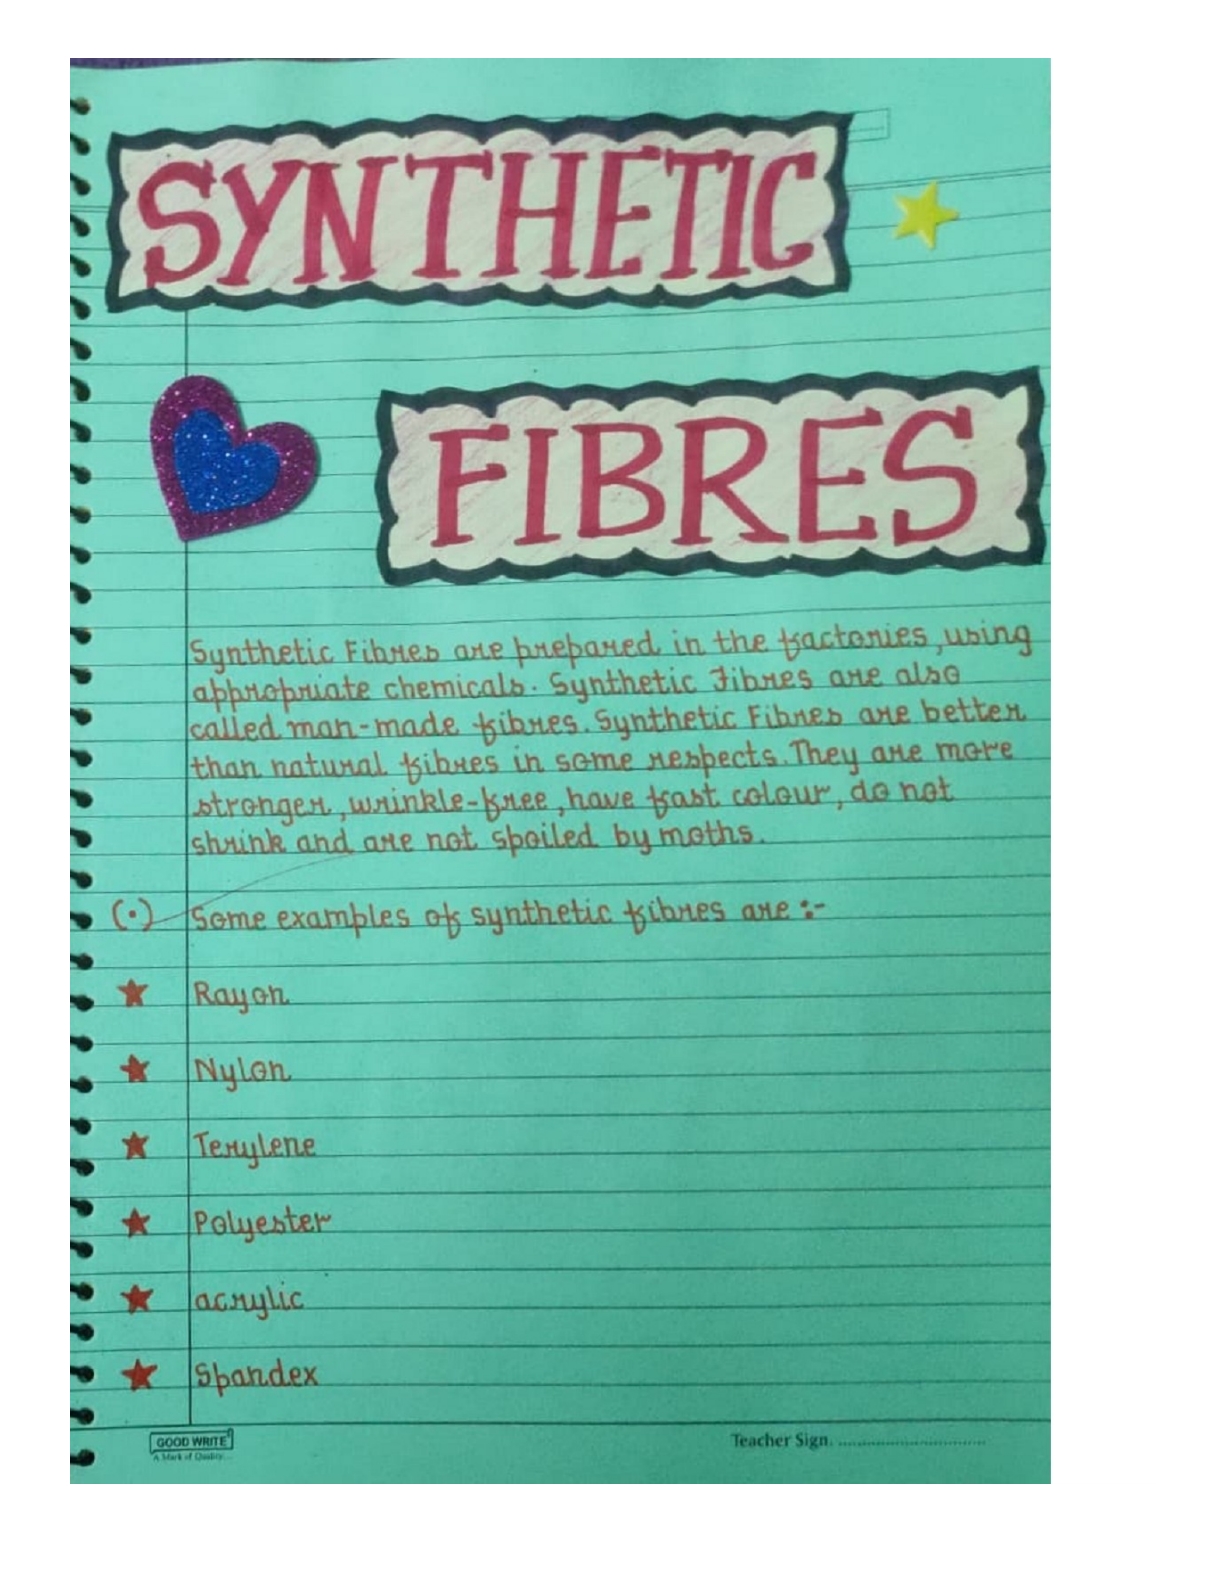 SYNTHETIC
FIBRES
Synthetic Fibres are prepared in the factories, using
appropriate chemicals. Synthetic Fibres are also
called man-made fibres. Synthetic Fibres are better
than natural fibres in some respects. They are more
stronger, wrinkle-free, have fast colour, do not
shrink and are not spoiled by moths.
(•) Some examples of synthetic fibres are :-
★ Rayon
★ Nylon
★ Terylene
★ Polyester
★ acrylic
★ Spandex
GOOD WRITE
A Mark of Quality...
Teacher Sign. ................................